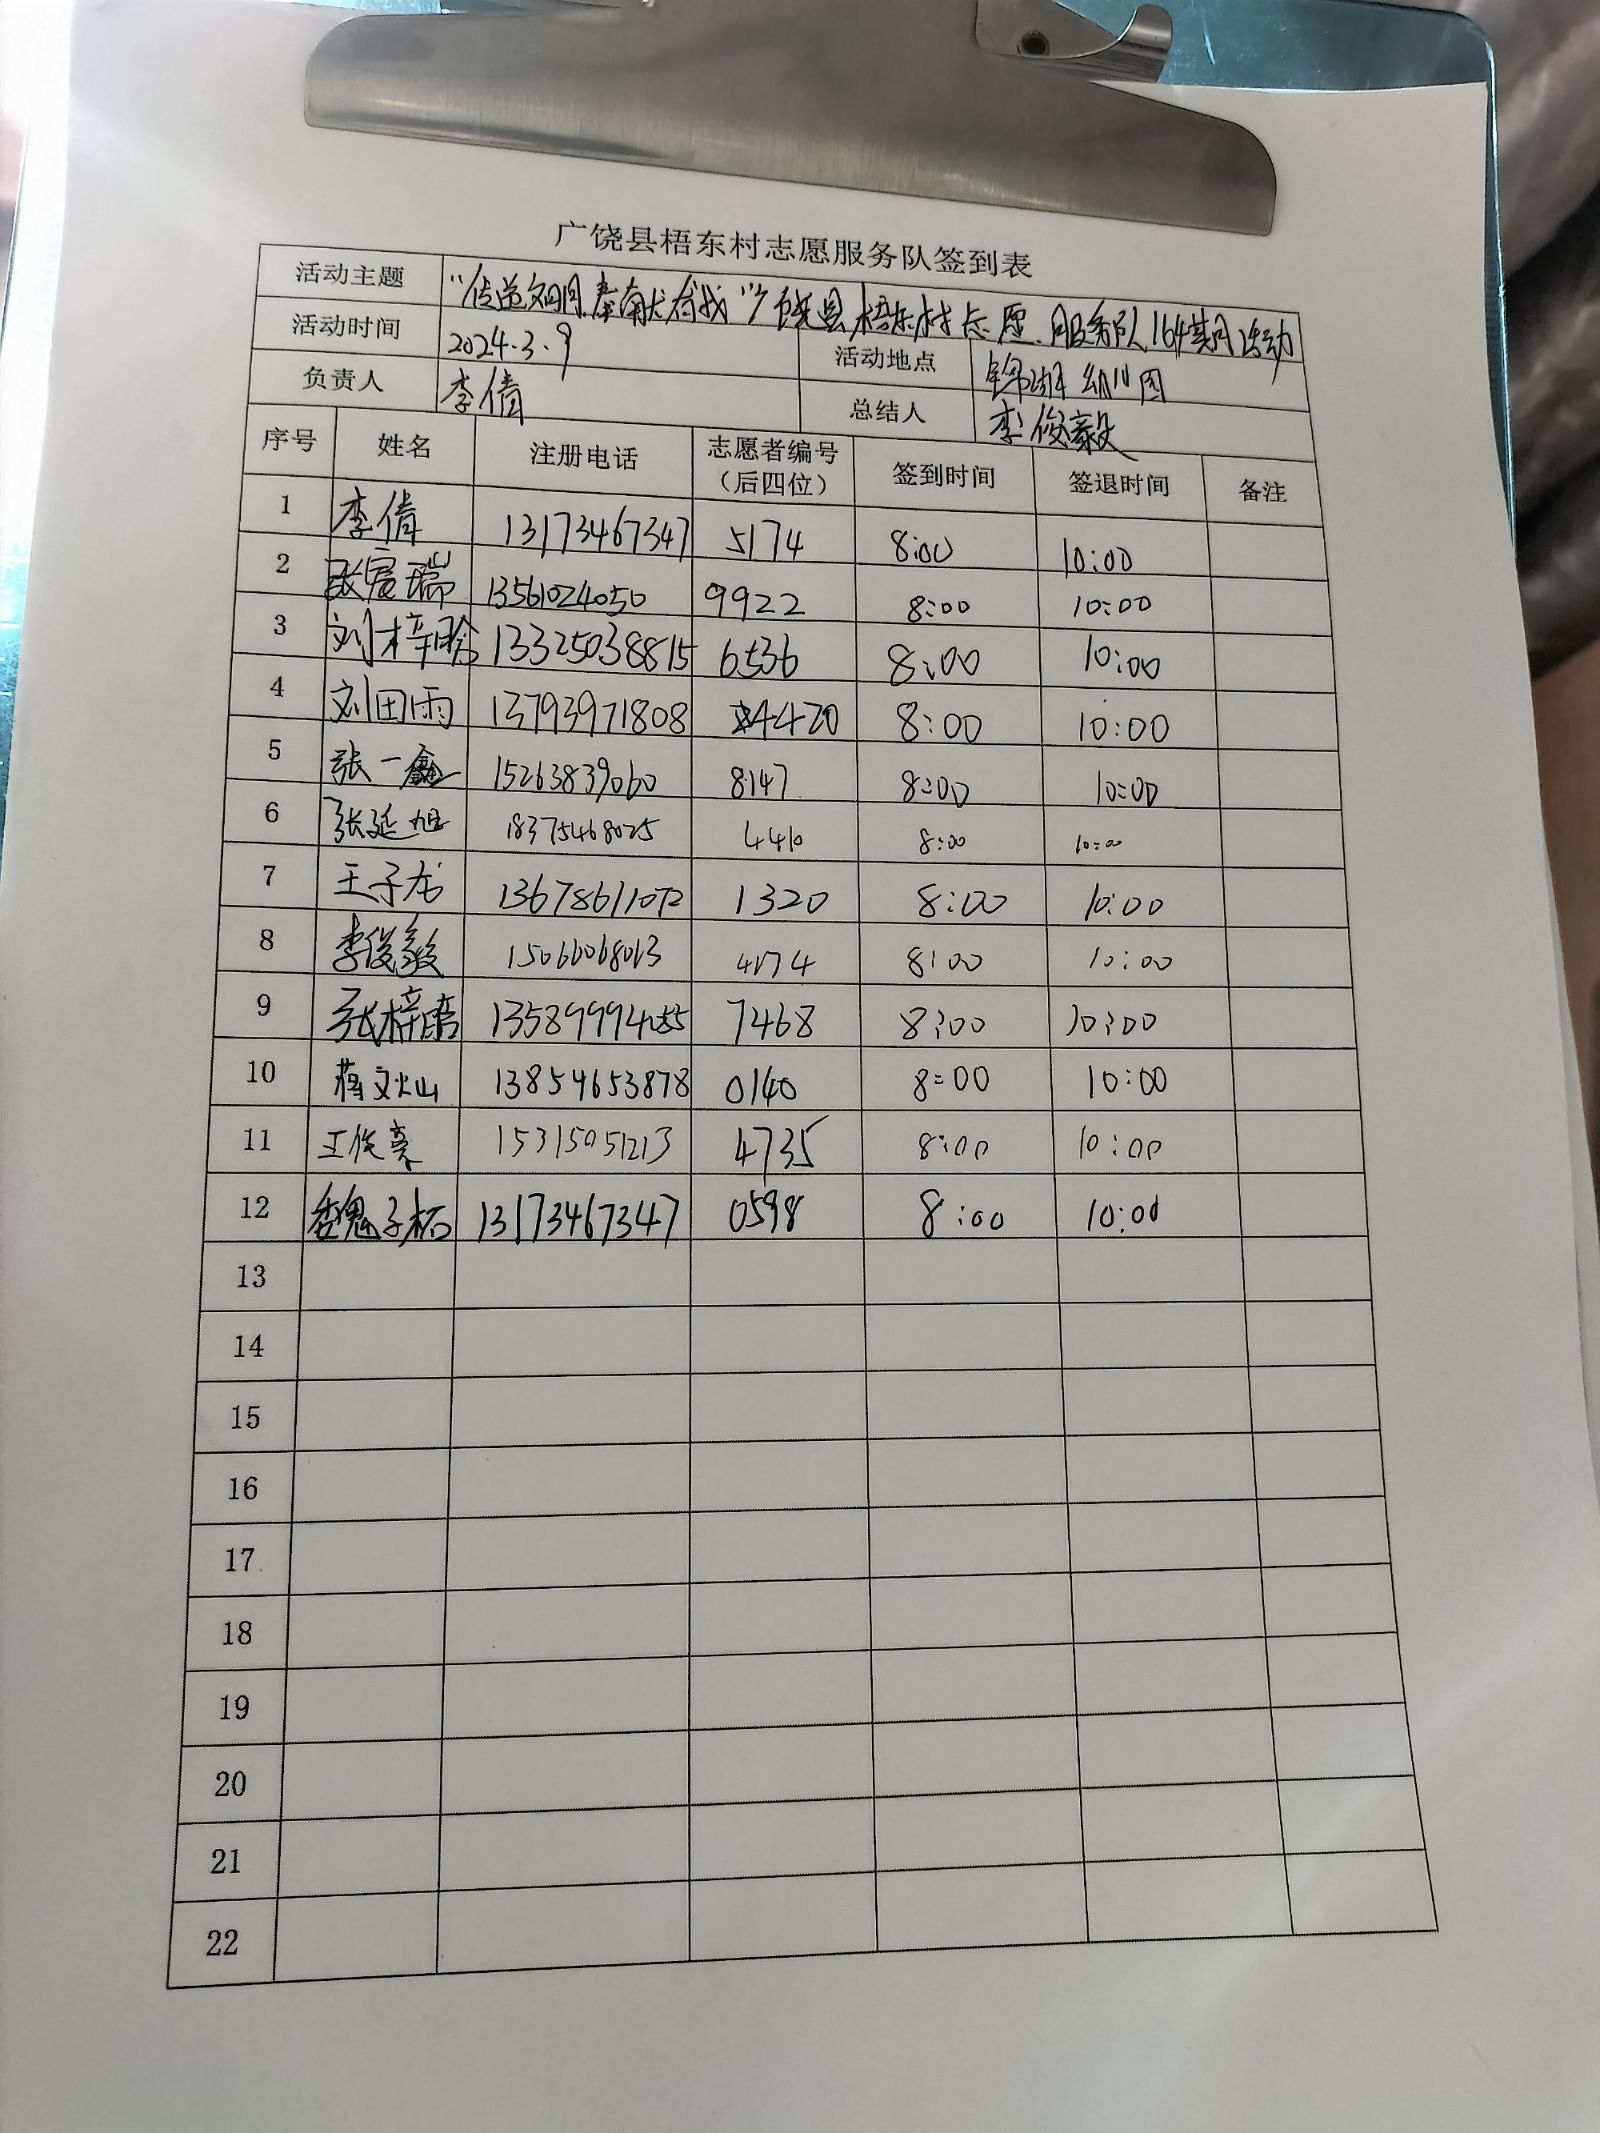 广饶县梧东村志愿服务队签到表
活动主题 “传递文明,奉献有我”广饶县梧东村志愿服务队164期活动
活动时间 2024.3.9 活动地点 锦湖幼儿园
负责人 李倩 总结人 李俊毅
序号 姓名 注册电话 志愿者编号（后四位） 签到时间 签退时间 备注
1 李倩 13173467347 5174 8:00 10:00
2 张宸瑞 13561024050 9922 8:00 10:00
3 刘梓晗 13325038815 6536 8:00 10:00
4 刘田雨 13793971808 4420 8:00 10:00
5 张一鑫 15263839060 8147 8:00 10:00
6 张延旭 18375468025 4410 8:00 10:00
7 王子龙 13678611072 1320 8:00 10:00
8 李俊毅 15066068013 4174 8:00 10:00
9 张梓 7468 8:00 10:00
10 蒋文灿 13854653878 0140 8:00 10:00
11 王俊豪 15315051213 4735 8:00 10:00
12 魏子柘 13173467347 0598 8:00 10:00
13
14
15
16
17
18
19
20
21
22